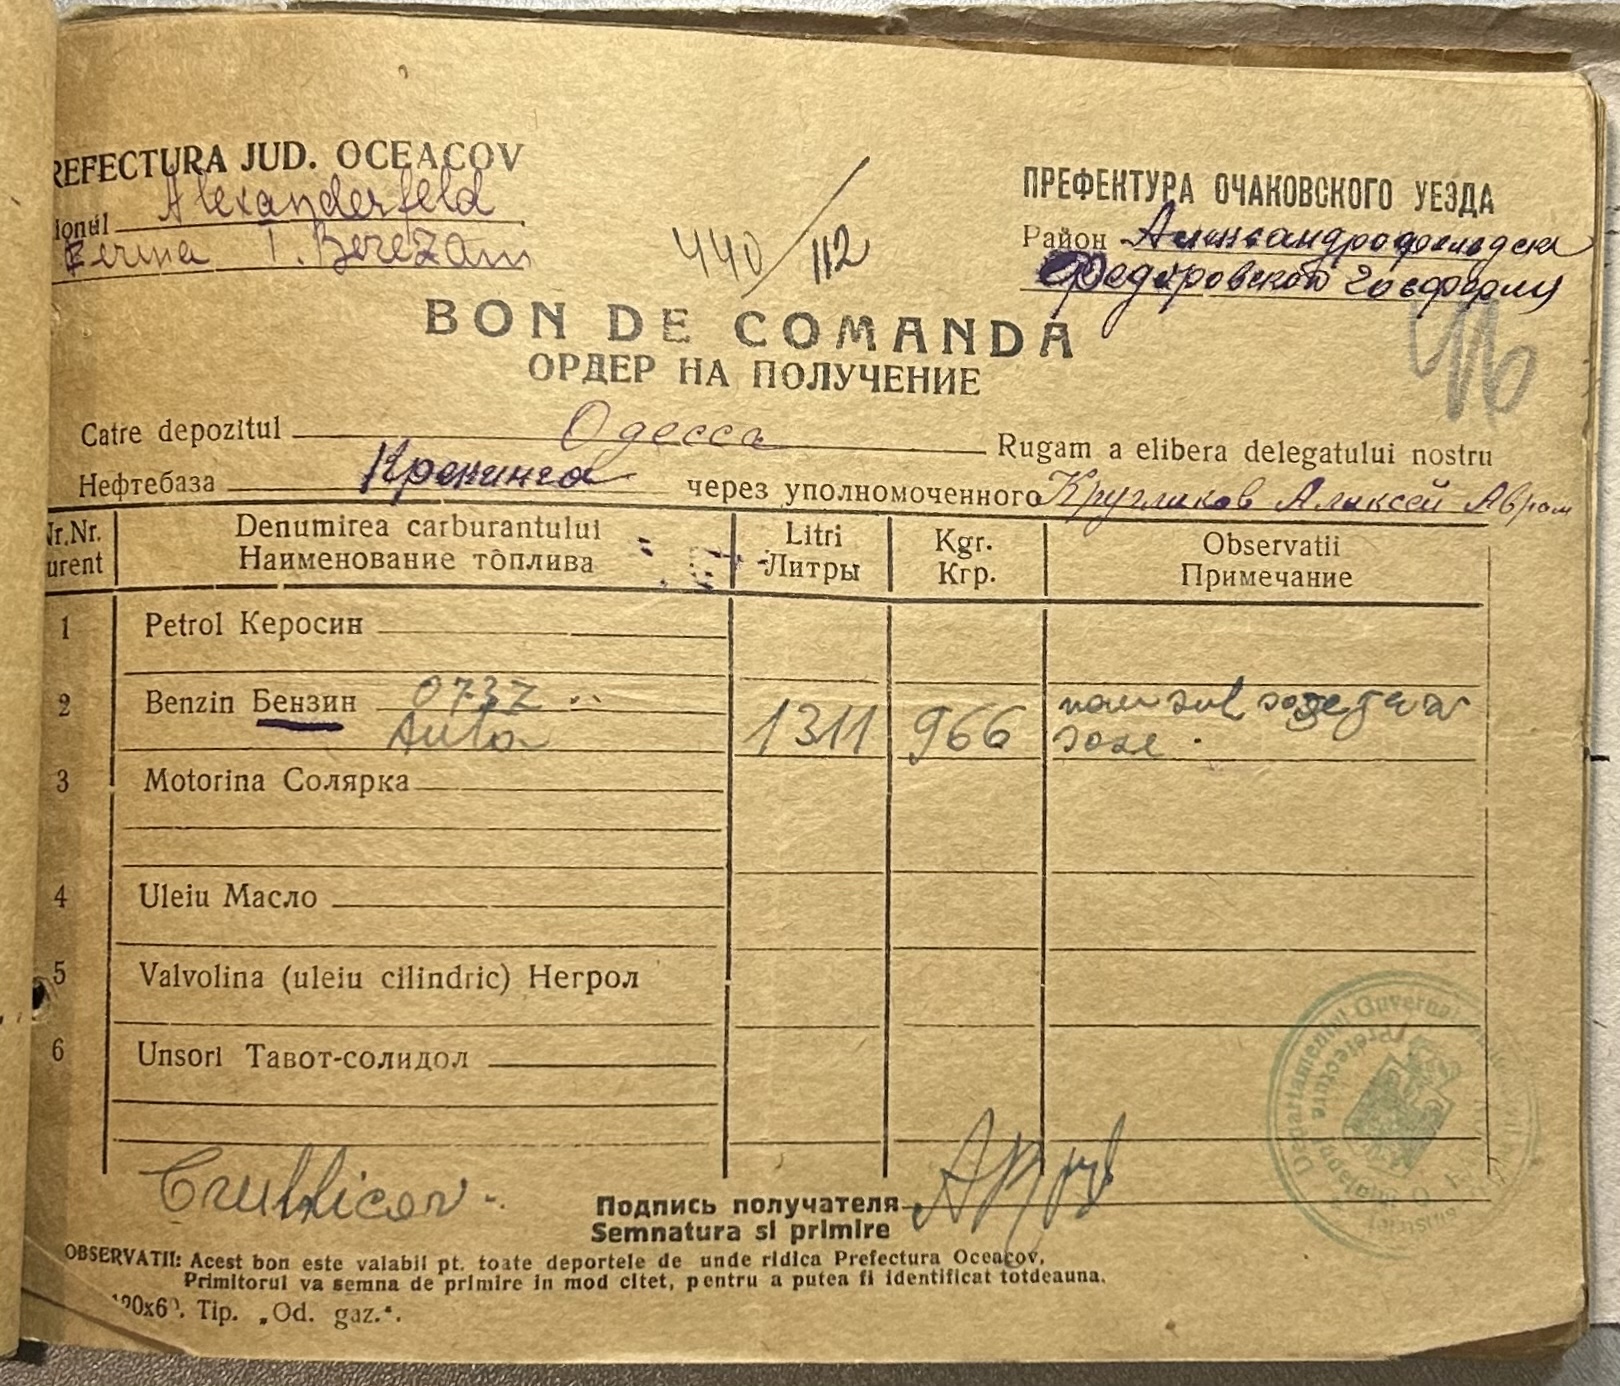 REFECTURA JUD. OCEACOV
ionul Alexanderfeld
Ferma T. Berezani
440/112
ПРЕФЕКТУРА ОЧАКОВСКОГО УЕЗДА
Район Александрофельдск
Федоровской госфермы
BON DE COMANDA
ОРДЕР НА ПОЛУЧЕНИЕ
Catre depozitul Одесса Rugam a elibera delegatului nostru
Нефтебаза Крекинга через уполномоченного Кругликов Алексей Аврам
Nr.Nr. Denumirea carburantului Litri Kgr. Observatii
urent Наименование топлива Литры Кгр. Примечание
1 Petrol Керосин
2 Benzin Бензин 0737
Auto 1311 966
3 Motorina Солярка
4 Uleiu Масло
5 Valvolina (uleiu cilindric) Негрол
6 Unsori Тавот-солидол
Подпись получателя
Semnatura si primire
OBSERVATII: Acest bon este valabil pt. toate deportele de unde ridica Prefectura Oceacov,
Primitorul va semna de primire in mod citet, pentru a putea fi identificat totdeauna.
Tip. „Od. gaz.“.